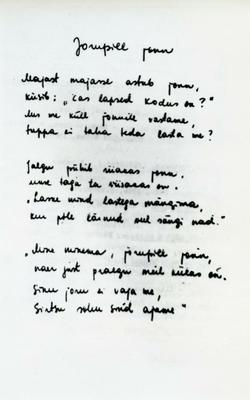 Jorupill jonn
Majast majasse astub jonn,
küsib: „Kas lapsed kodus on?"
Mis me küll jonnile vastame,
tuppa ei taha teda lasta me?
Jalgu pühib viisakas jonn.
ukse taga ta viisakas on.
„Laske mind lastega mängima,
kui pole läinud veel sängi nad."
„Mine minema, jorupill jonn,
naer just praegu meil külas on.
Sinu joru ei vaja me,
Siitsa sind ajame"